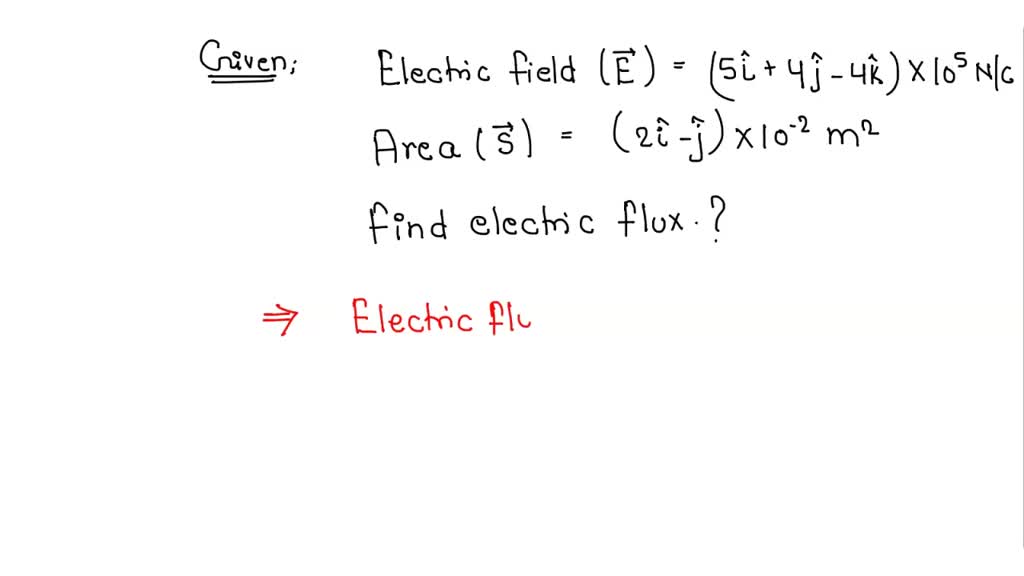 Given;
Electric field (E⃗) = (5î + 4ĵ - 4k̂) × 10⁵ N/C
Area (S⃗) = (2î - ĵ) × 10⁻² m²
find electric flux. ?
⇒ Electric flu